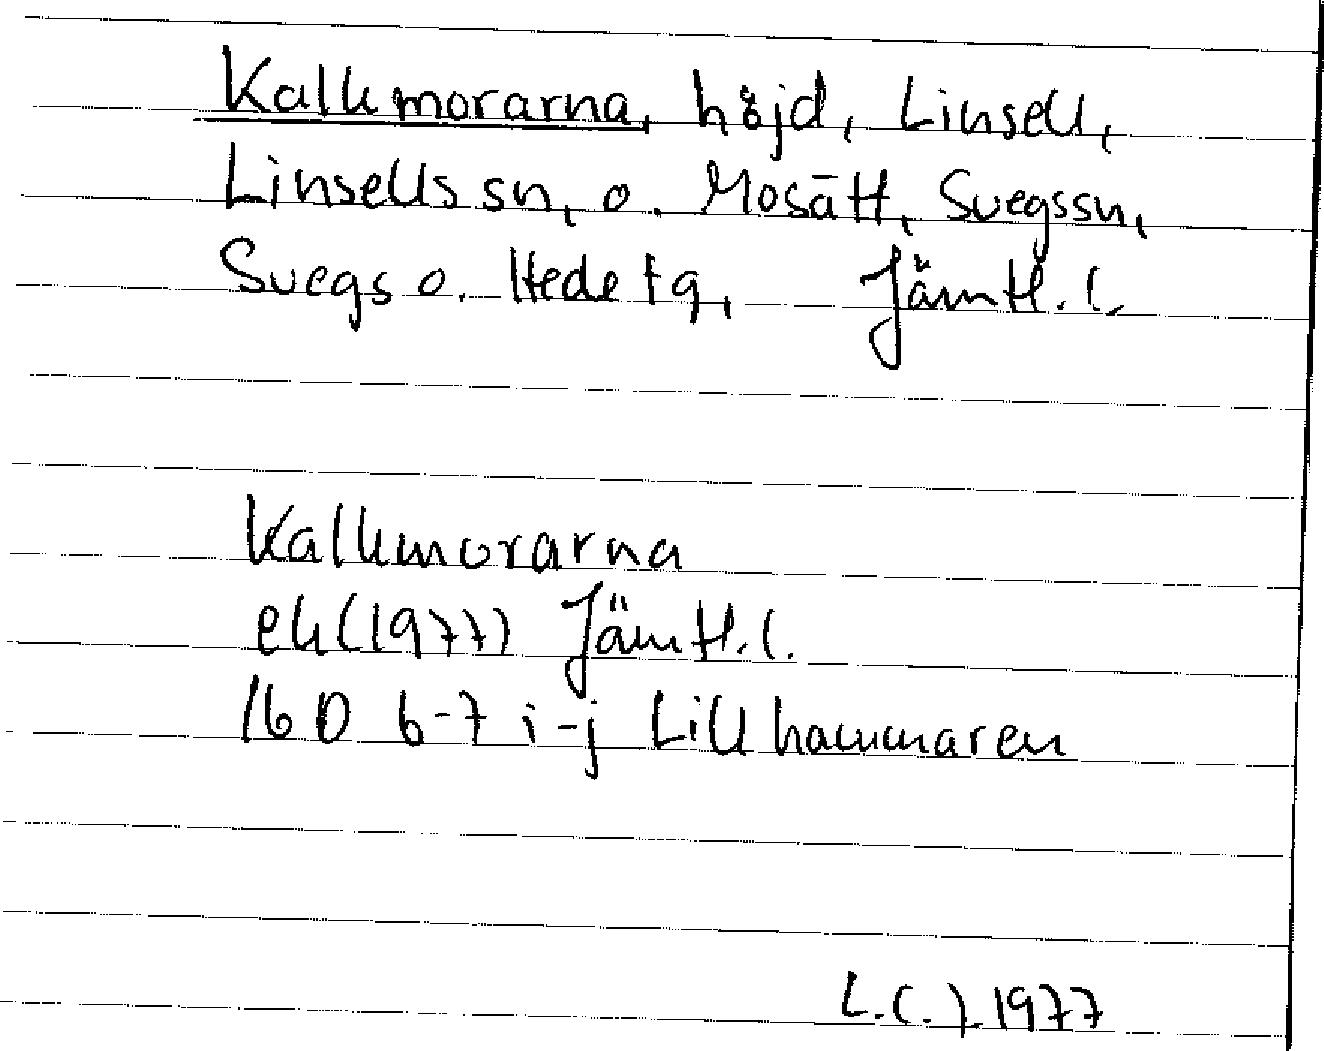 Kalkmorarna, höjd, Linsell,
Linsells sn, o. Mosätt, Svegs sn,
Svegs o. Hede tg, Jämtl. l.
Kalkmorarna
ek (1977) Jämtl. l.
16D 6-7 i-j Lillhammaren
1977